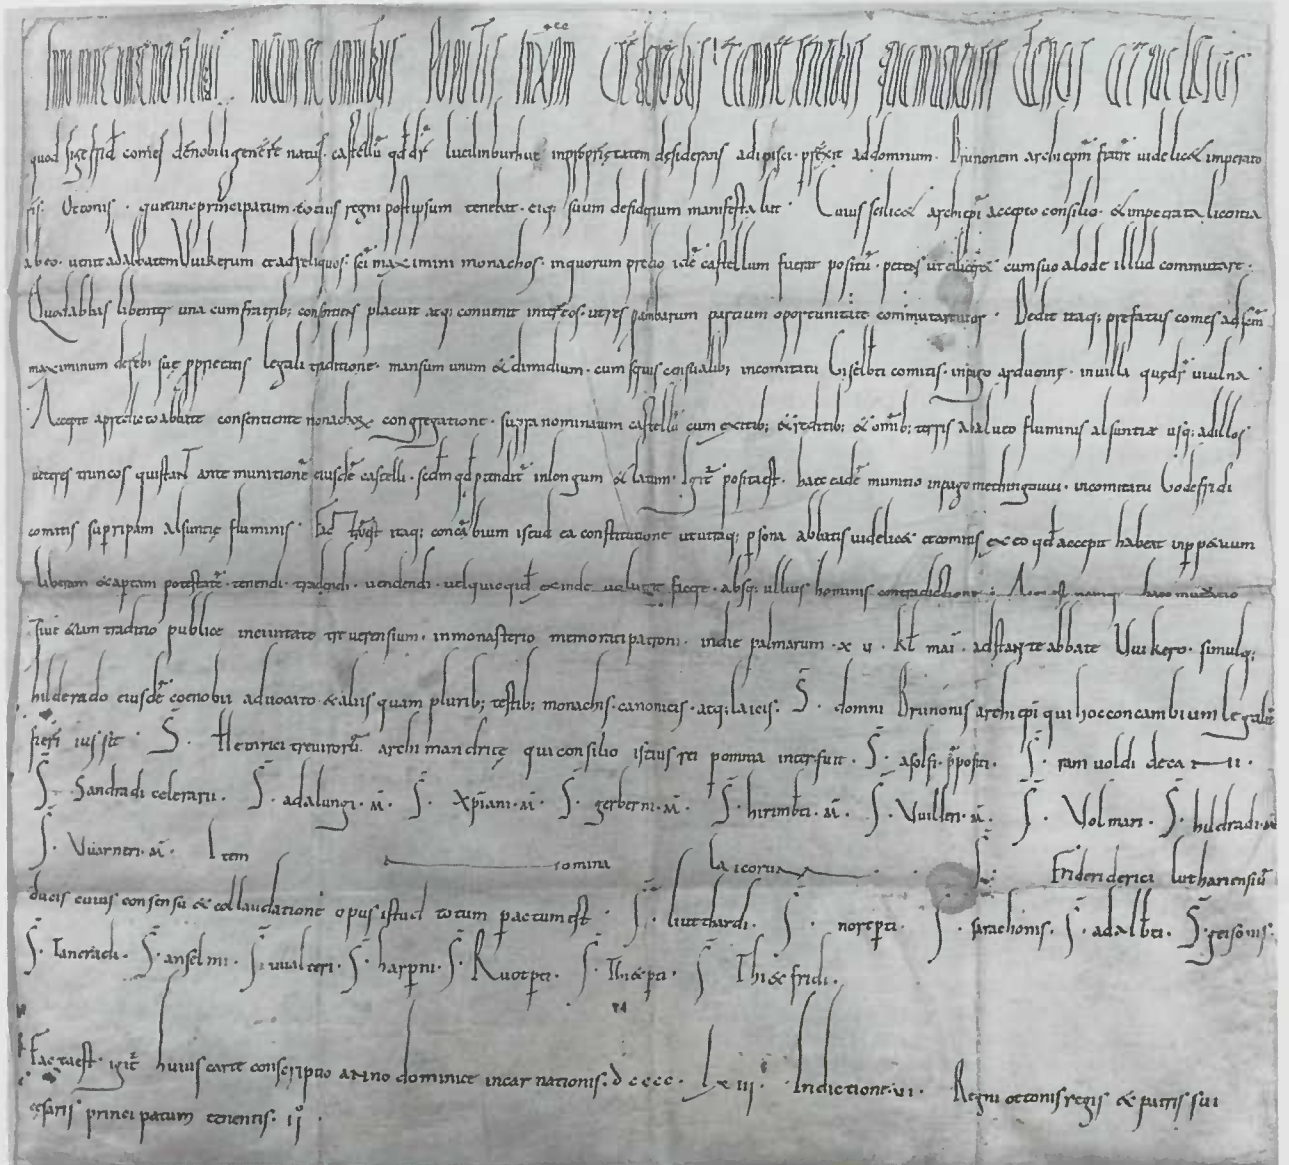 In nomine omnipotentis filii dei notum sit omnibus populis in xpm credentibus tempore presentibus quam venturis clericis et laicis
quod sigefrid comes de nobili genere natus castellū qd dr̄ lucilinburhut in proprietatem desiderans adipisci · perrexit ad domnum · Brunonem archiepm̄ fratrē videlicet imperato
ris · Ottonis · qui tunc principatum totius regni post ipsum tenebat eiq; suum desiderium manifestavit · Cuius scilicet archiepi accepto consilio · et impetrata licentia
ab eo · venit ad abbatem Vuikerum et ad reliquos · sci maximini monachos · in quorum predio idē castellum fuerat positū · petens ut ei liceret cum suo alode illud commutare ·
Quod abbas libenter una cum fratrib; consentiens placuit atq; convenit inter eos · ut res ambarum partium oportunitate commutarentur · Dedit itaq; prefatus comes ad scm̄
maximinum de reb; suę pprietatis legali traditione · mansum unum et dimidium · cum servis censualib; in comitatu Giselbti comitis · in pago arduennę · in villa quę dr̄ viulna ·
Accepit a predicto abbate consentiente monachorum congregatione · supra nominatum castellū cum exitib; et reditib; et omib; terris ab alveo fluminis alsuntiæ usq; ad illos
veteres truncos qui stant ante munitionē eiusdē castelli · scdm qd ptenditr̄ in longum et latum · Igitr̄ posita est · hæc eadē munitio in pago methingovui · in comitatu Godefridi
comitis sup ripam alsuntię fluminis · Factum est itaq; concābium istud ea constitutione ut utraq; psona abbatis videlicet et comitis ex eo qd accepit habeat in ppetuum
liberam et aptam potestatē · tenendi · tradendi · vendendi · vel quicquid exinde voluerit facere · absq; ullius hominis contradictione · Acta est namq; hæc mutatio
sive etiam traditio publice in civitate treverensium · in monasterio memorati patroni · in die palmarum · x v · kl mai · adstante abbate Vuikero · simulq;
hilderado eiusdē coenobii advocato et aliis quam plurib; testib; monachis · canonicis · atq; laicis · S · domni Brunonis archiepi qui hoc concambium legalit̄
fieri iussit · S · Heinrici trevirorū archimandritę qui consilio istius rei p omnia interfuit · S · asolfi · ppositi · S · ramvoldi decani ·
S · Sandradi celerarii · S · adalungi · M · S · Xpiani · M · S · gerberni · M · S · hirimbti · M · S · Vuilleri · M · S · Volmari · S · hildradi · M
S · Vuarneri · M · Item nomina laicorum · S · Friderici luthariensiū
ducis cuius consensu et collaudatione opus istud totum pactum est · S · liutthardi · S · notepti · S · sarachonis · S · adalbti · S · geisonis ·
S · Tancradi · S · anselmi · S · vualteri · S · harpini · S · Ruotpti · S · Thietpti · S · Thietfridi ·
Facta est · igitr̄ huius carte conscriptio anno dominice incarnationis · dcccc · lxiii · Indictione · vi · Regni ottonis regis et patris sui
cesaris principatum tenentis · ii ·